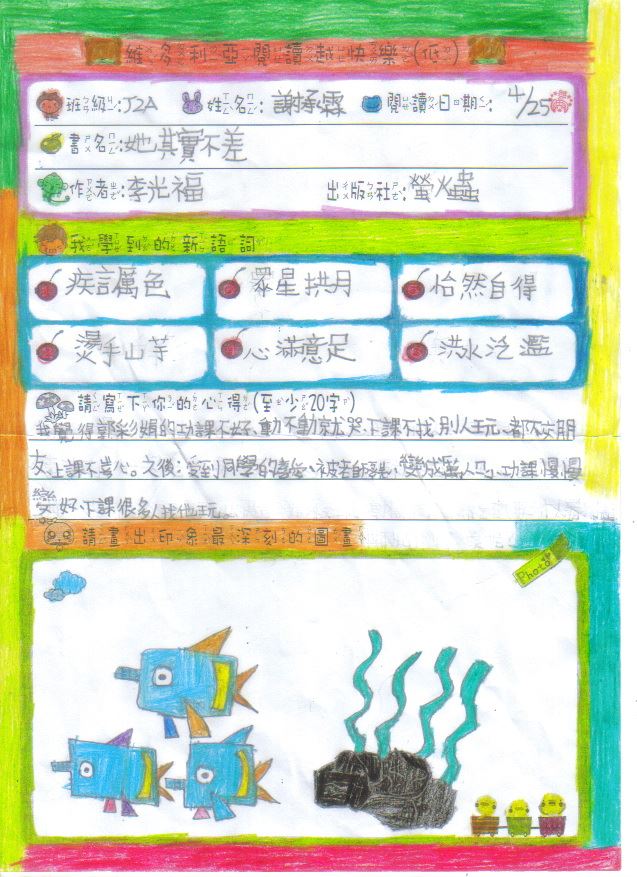 維多利亞閱讀越快樂(低)
班級:J2A 姓名:謝承霖 閱讀日期:4/25
書名:她其實不差
作者:李光福 出版社:螢火蟲
我學到的新語詞
疾言厲色 眾星拱月 怡然自得
燙手山芋 心滿意足 洪水汜濫
請寫下你的心得(至少20字)
我覺得郭彩娟的功課不好、動不動就哭、下課不找別人玩、都不交朋
友上課不專心。之後:受到同學的 、被老師 、變成萬人 、功課慢慢
變好下課很多人找他玩。
請畫出印象最深刻的圖畫
Photo